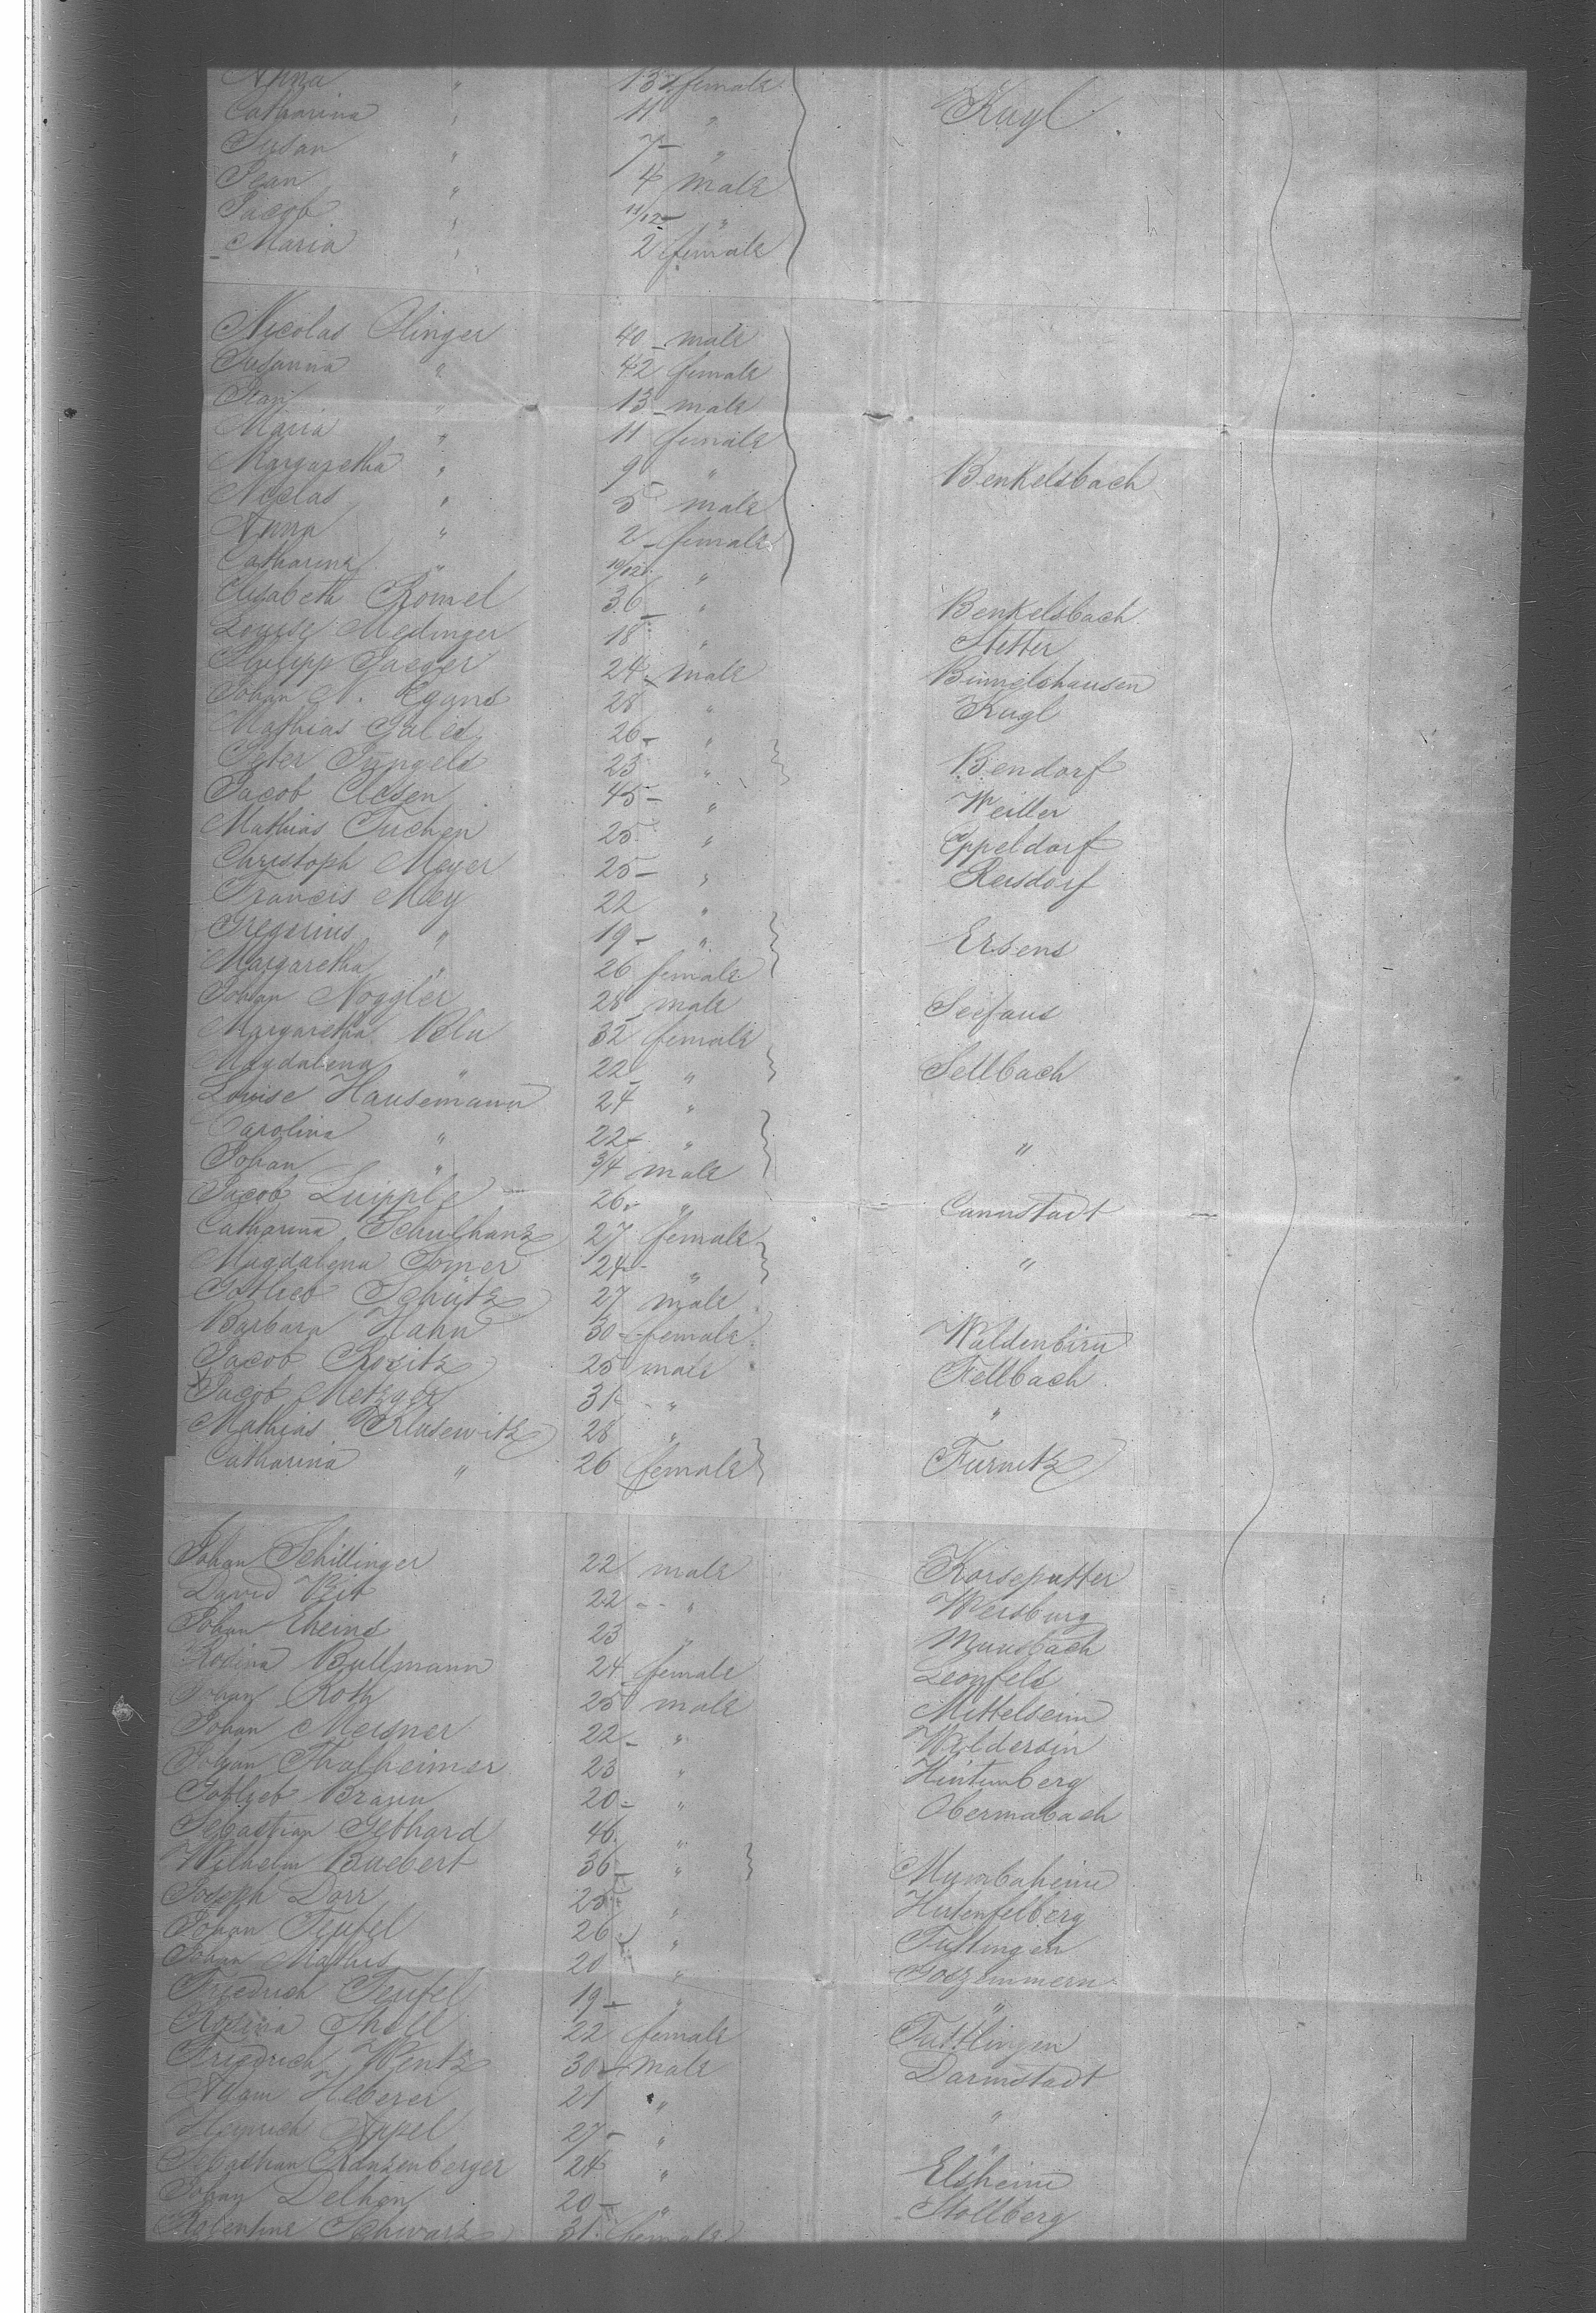 Anna " 13 female
Catharina " 11 " Kugl
Susan " 7 "
Jean " 4 male
Jacob " 11/12 "
Maria " 2 female
Nicolas Olinger 40 male
Susanna " 42 female
Jean " 13 male
Maria " 11 female
Margaretha " 9 " Benkelsbach
Niclas " 5 male
Anna " 2 female
Catharina " 10/12 "
Elisabeth Romel 36 " Benkelsbach
Louise Medinger 18 " Stetter
Philipp Jaeger 24 male
Johan N. 28 " Kugl
Mathias 26 "
Peter 23 " Bendorf
Jacob 45 " Weiller
Mathias Tuchen 25 " Eppeldorf
Christoph Meyer 25 " Reisdorf
Francis Mey 22 "
Gregorius " 19 " Ersens
Margaretha " 26 female
Johan Noggler 28 male Seefaus
Margaretha Blu 32 female
Magdalena " 22 " Sellbach
Louise Hausemann 24 "
Carolina " 22 " "
Johan " 3/4 male
Jacob Luipple 26 " Cannstadt
Catharina Schulhanz 27 female
Magdalena Somer 24 " "
Gotlieb Schütz 27 male
Barbara Hahn 30 female Waldenbirn
Jacob 25 male Fellbach
Jacob Metzger 31 " "
Mathias Klusewitz 28 "
Catharina " 26 female Furnitz
Johan Schillinger 22 male
David 22 " Wersburg
Johan Theins 23 " Munsbach
Rosina Bullmann 24 female Leonfels
Johan Roth 25 male Mittelseim
Johan Meisner 22 " Woldersin
Johan Thalheimer 23 "
Gotlieb Braun 20 " Obermabach
Sebastian Gebhard 46 "
Wilhelm Buebert 36 " Mumbaheim
Joseph Dorr 25 " Hirtenfelberg
Johan Teufel 26 " Tuttingen
Johan Mathis 20 " Goezimmern
Friedrich Teufel 19 " "
Rosina Sholl 22 female Tuttlingen
Friedrich Wentz 30 male Darmstadt
Adam Heberer 21 "
Heinrich Appel 27 " "
Sebastian Kranzenberger 24 " Elsheim
Johan Delhen 20 " Stollberg
Schwarz 31 female